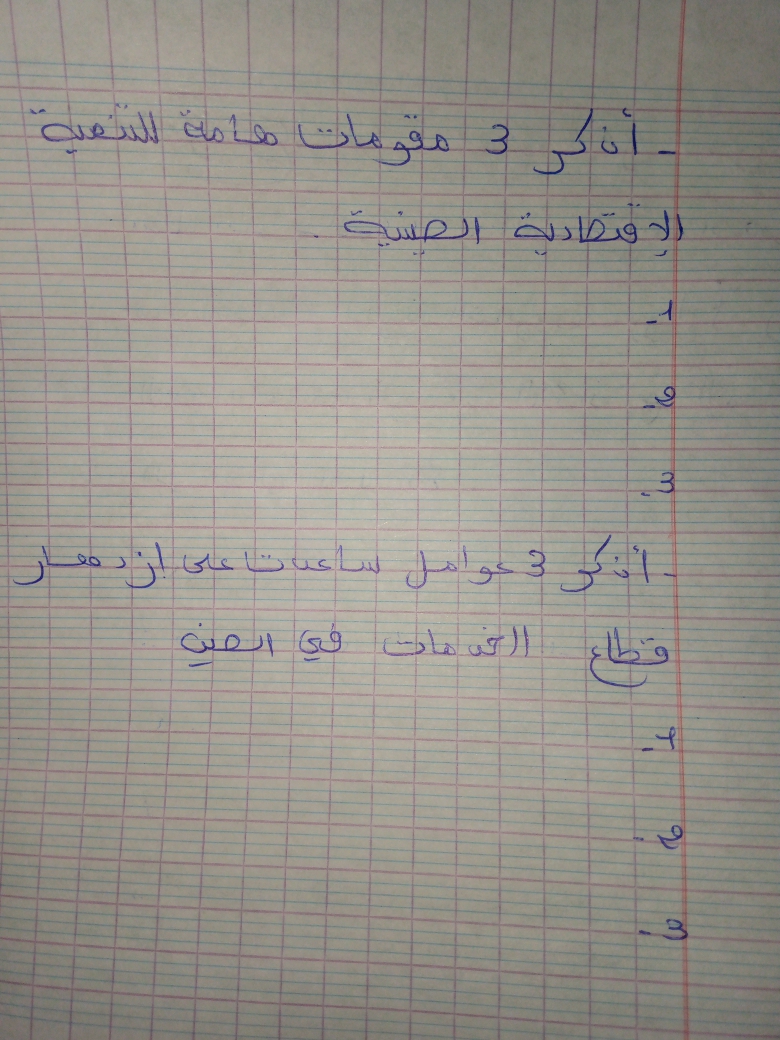 - أذكر 3 مقومات هامة للتنمية
الإقتصادية الصينية .
1-
2-
3-
- أذكر 3 عوامل ساعدت على ازدهار
قطاع الخدمات في الصين
1-
2-
3-